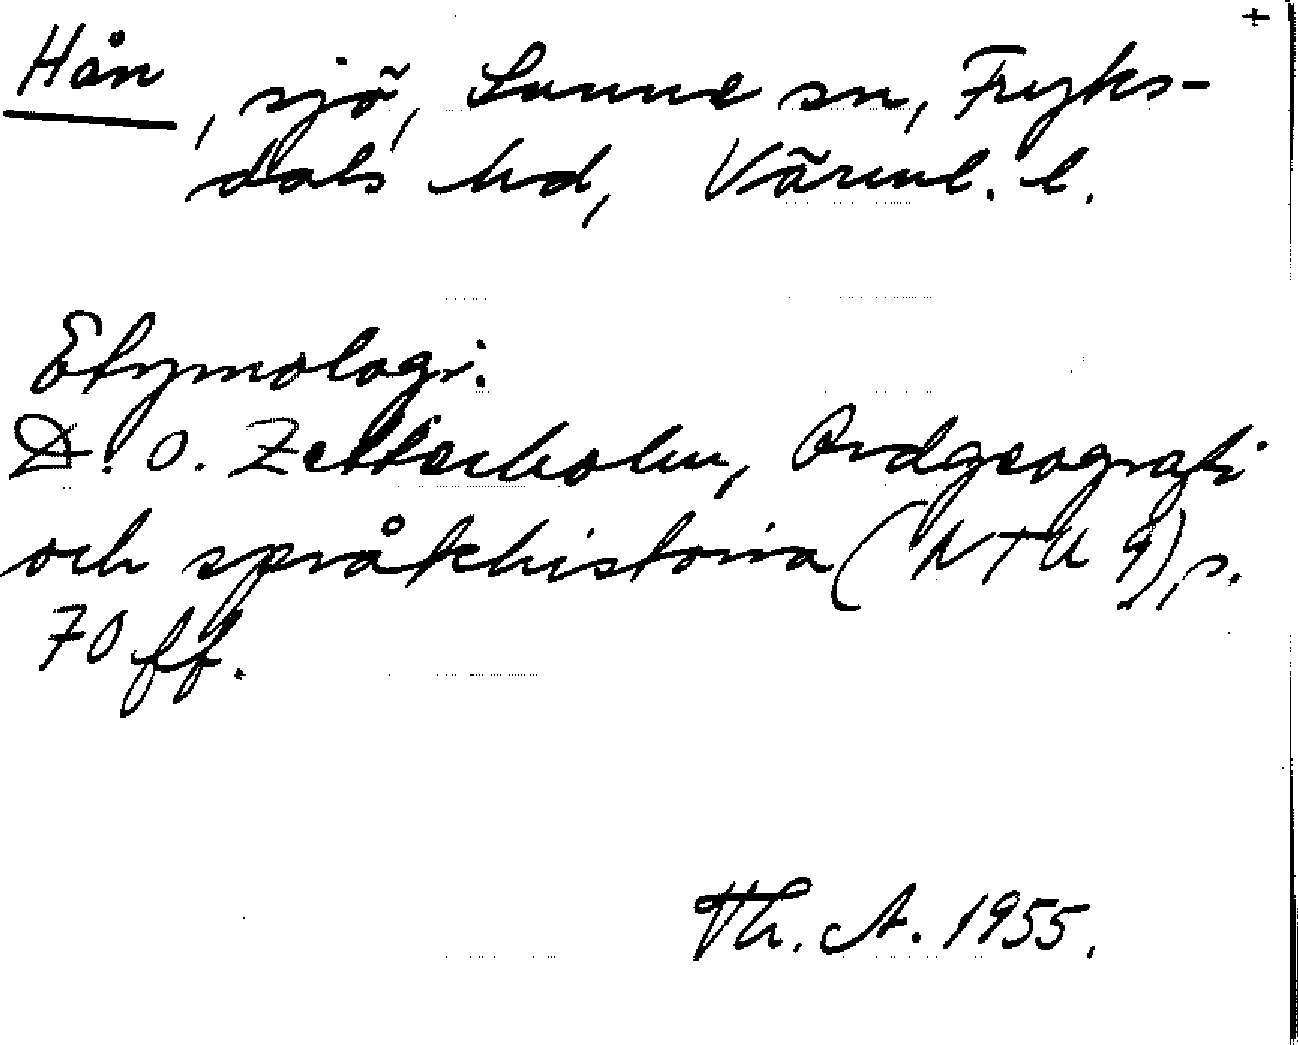 +
Hån, sjö, Sunne sn, Fryks-
dals hd, Värml. l.
Etymologi:
D. O. Zetterholm, Ordgeografi
och språkhistoria (NTU 9), s.
70 ff.
Th. A. 1955.